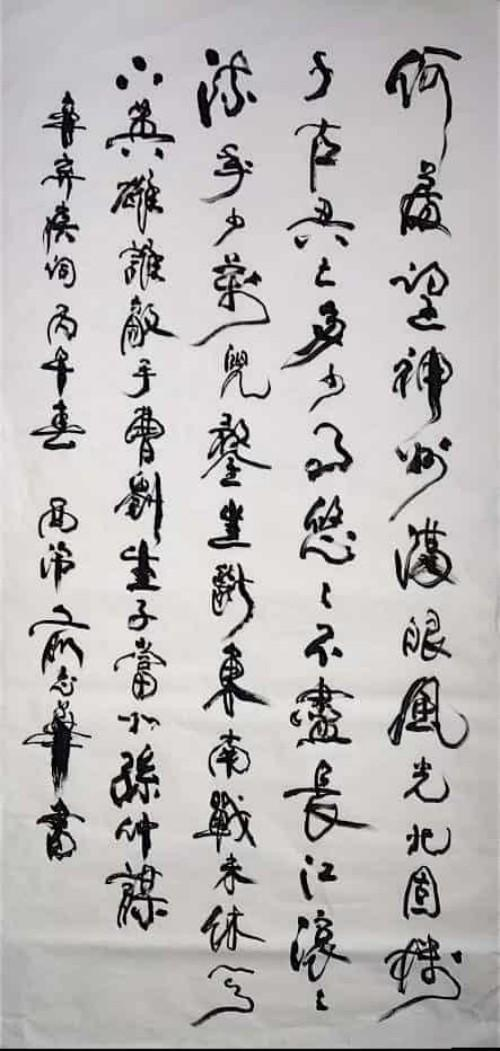 何處望神州滿眼風光北固樓
千古興亡多少事悠〻不盡長江滾〻
流年少萬兜鍪坐斷東南戰未休天
下英雄誰敵手曹劉生子當如孫仲謀
辛棄疾詞丙午春 志華書